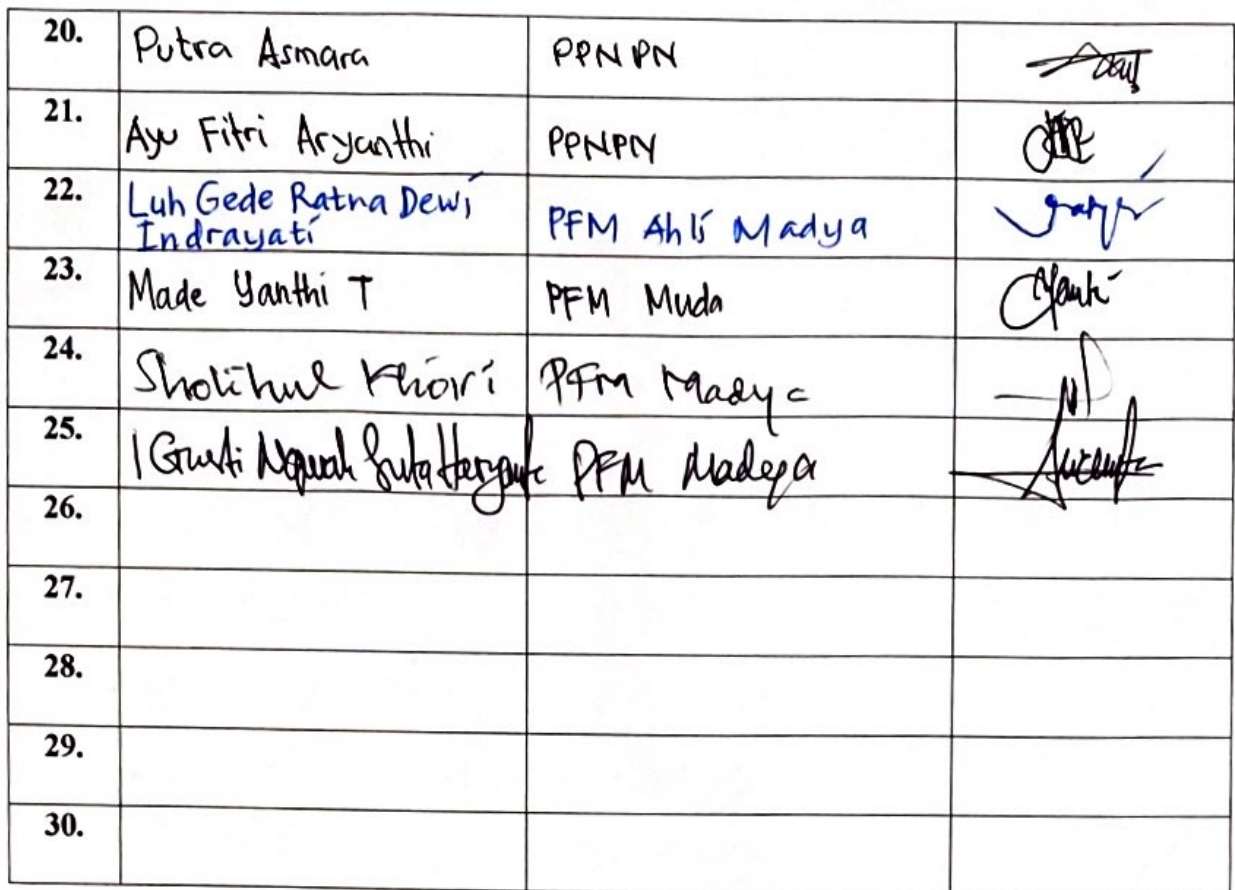 20. Putra Asmara PPNPN
21. Ayu Fitri Aryanthi PPNPN
22. Luh Gede Ratna Dewi PFM Ahli Madya
Indrayati
23. Made Yanthi T PFM Muda
24. Sholihul Khoiri PFM Madya
25. I Gusti Ngurah PFM Madya
26.
27.
28.
29.
30.